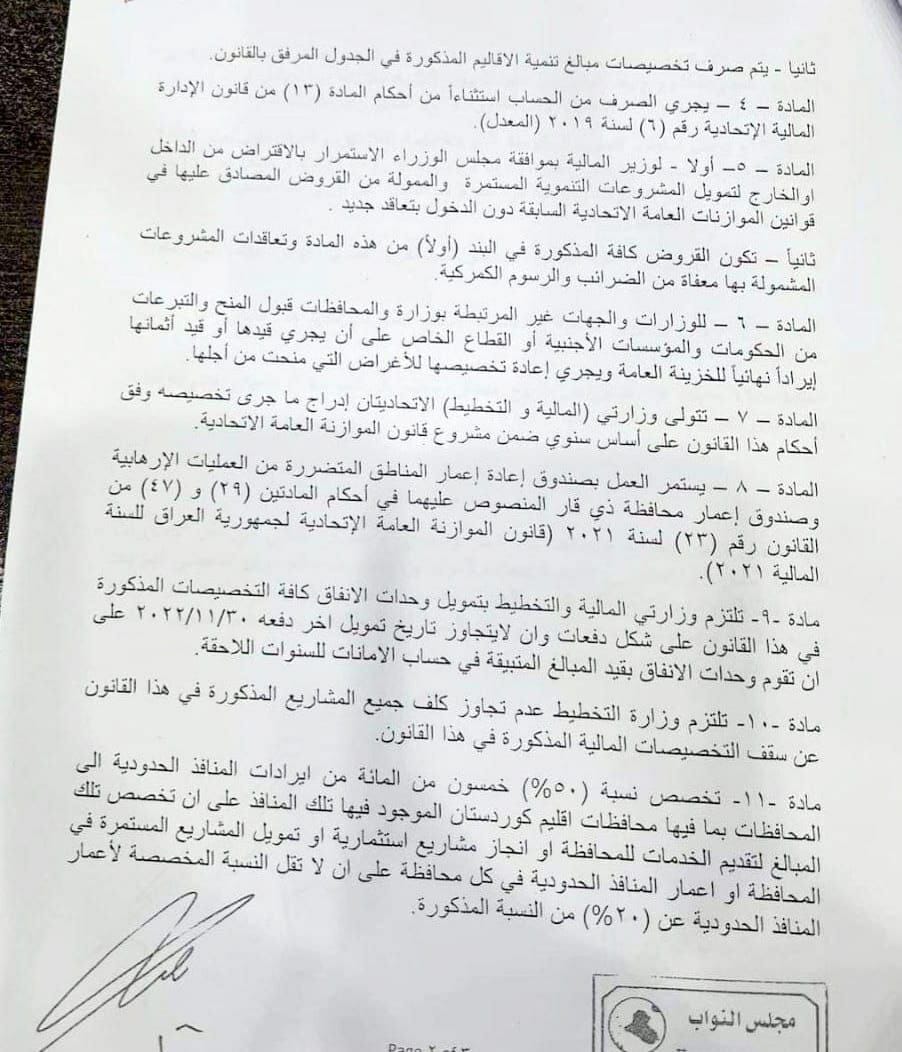 ثانيا - يتم صرف تخصيصات مبالغ تنمية الاقاليم المذكورة في الجدول المرفق بالقانون.
المادة – ٤ – يجري الصرف من الحساب استثناءاً من أحكام المادة (١٣) من قانون الإدارة
المالية الإتحادية رقم (٦) لسنة ٢٠١٩ (المعدل).
المادة – ٥– أولا - لوزير المالية بموافقة مجلس الوزراء الاستمرار بالاقتراض من الداخل
اوالخارج لتمويل المشروعات التنموية المستمرة والممولة من القروض المصادق عليها في
قوانين الموازنات العامة الاتحادية السابقة دون الدخول بتعاقد جديد .
ثانياً – تكون القروض كافة المذكورة في البند (أولاً) من هذه المادة وتعاقدات المشروعات
المشمولة بها معفاة من الضرائب والرسوم الكمركية.
المادة – ٦ – للوزارات والجهات غير المرتبطة بوزارة والمحافظات قبول المنح والتبرعات
من الحكومات والمؤسسات الأجنبية أو القطاع الخاص على أن يجري قيدها أو قيد أثمانها
إيراداً نهائياً للخزينة العامة ويجري إعادة تخصيصها للأغراض التي منحت من أجلها.
المادة – ٧ – تتولى وزارتي (المالية و التخطيط) الاتحاديتان إدراج ما جرى تخصيصه وفق
أحكام هذا القانون على أساس سنوي ضمن مشروع قانون الموازنة العامة الاتحادية.
المادة – ٨ – يستمر العمل بصندوق إعادة إعمار المناطق المتضررة من العمليات الإرهابية
وصندوق إعمار محافظة ذي قار المنصوص عليهما في أحكام المادتين (٢٩) و (٤٧) من
القانون رقم (٢٣) لسنة ٢٠٢١ (قانون الموازنة العامة الإتحادية لجمهورية العراق للسنة
المالية ٢٠٢١).
مادة -٩- تلتزم وزارتي المالية والتخطيط بتمويل وحدات الانفاق كافة التخصيصات المذكورة
في هذا القانون على شكل دفعات وان لايتجاوز تاريخ تمويل اخر دفعه ٢٠٢٢/١١/٣٠ على
ان تقوم وحدات الانفاق بقيد المبالغ المتبيقة في حساب الامانات للسنوات اللاحقة.
مادة -١٠- تلتزم وزارة التخطيط عدم تجاوز كلف جميع المشاريع المذكورة في هذا القانون
عن سقف التخصيصات المالية المذكورة في هذا القانون.
مادة -١١- تخصص نسبة (٥٠%) خمسون من المائة من ايرادات المنافذ الحدودية الى
المحافظات بما فيها محافظات اقليم كوردستان الموجود فيها تلك المنافذ على ان تخصص تلك
المبالغ لتقديم الخدمات للمحافظة او انجاز مشاريع استثمارية او تمويل المشاريع المستمرة في
المحافظة او اعمار المنافذ الحدودية في كل محافظة على ان لا تقل النسبة المخصصة لأعمار
المنافذ الحدودية عن (٢٠%) من النسبة المذكورة.
مجلس النواب
Page ٢ of ٣